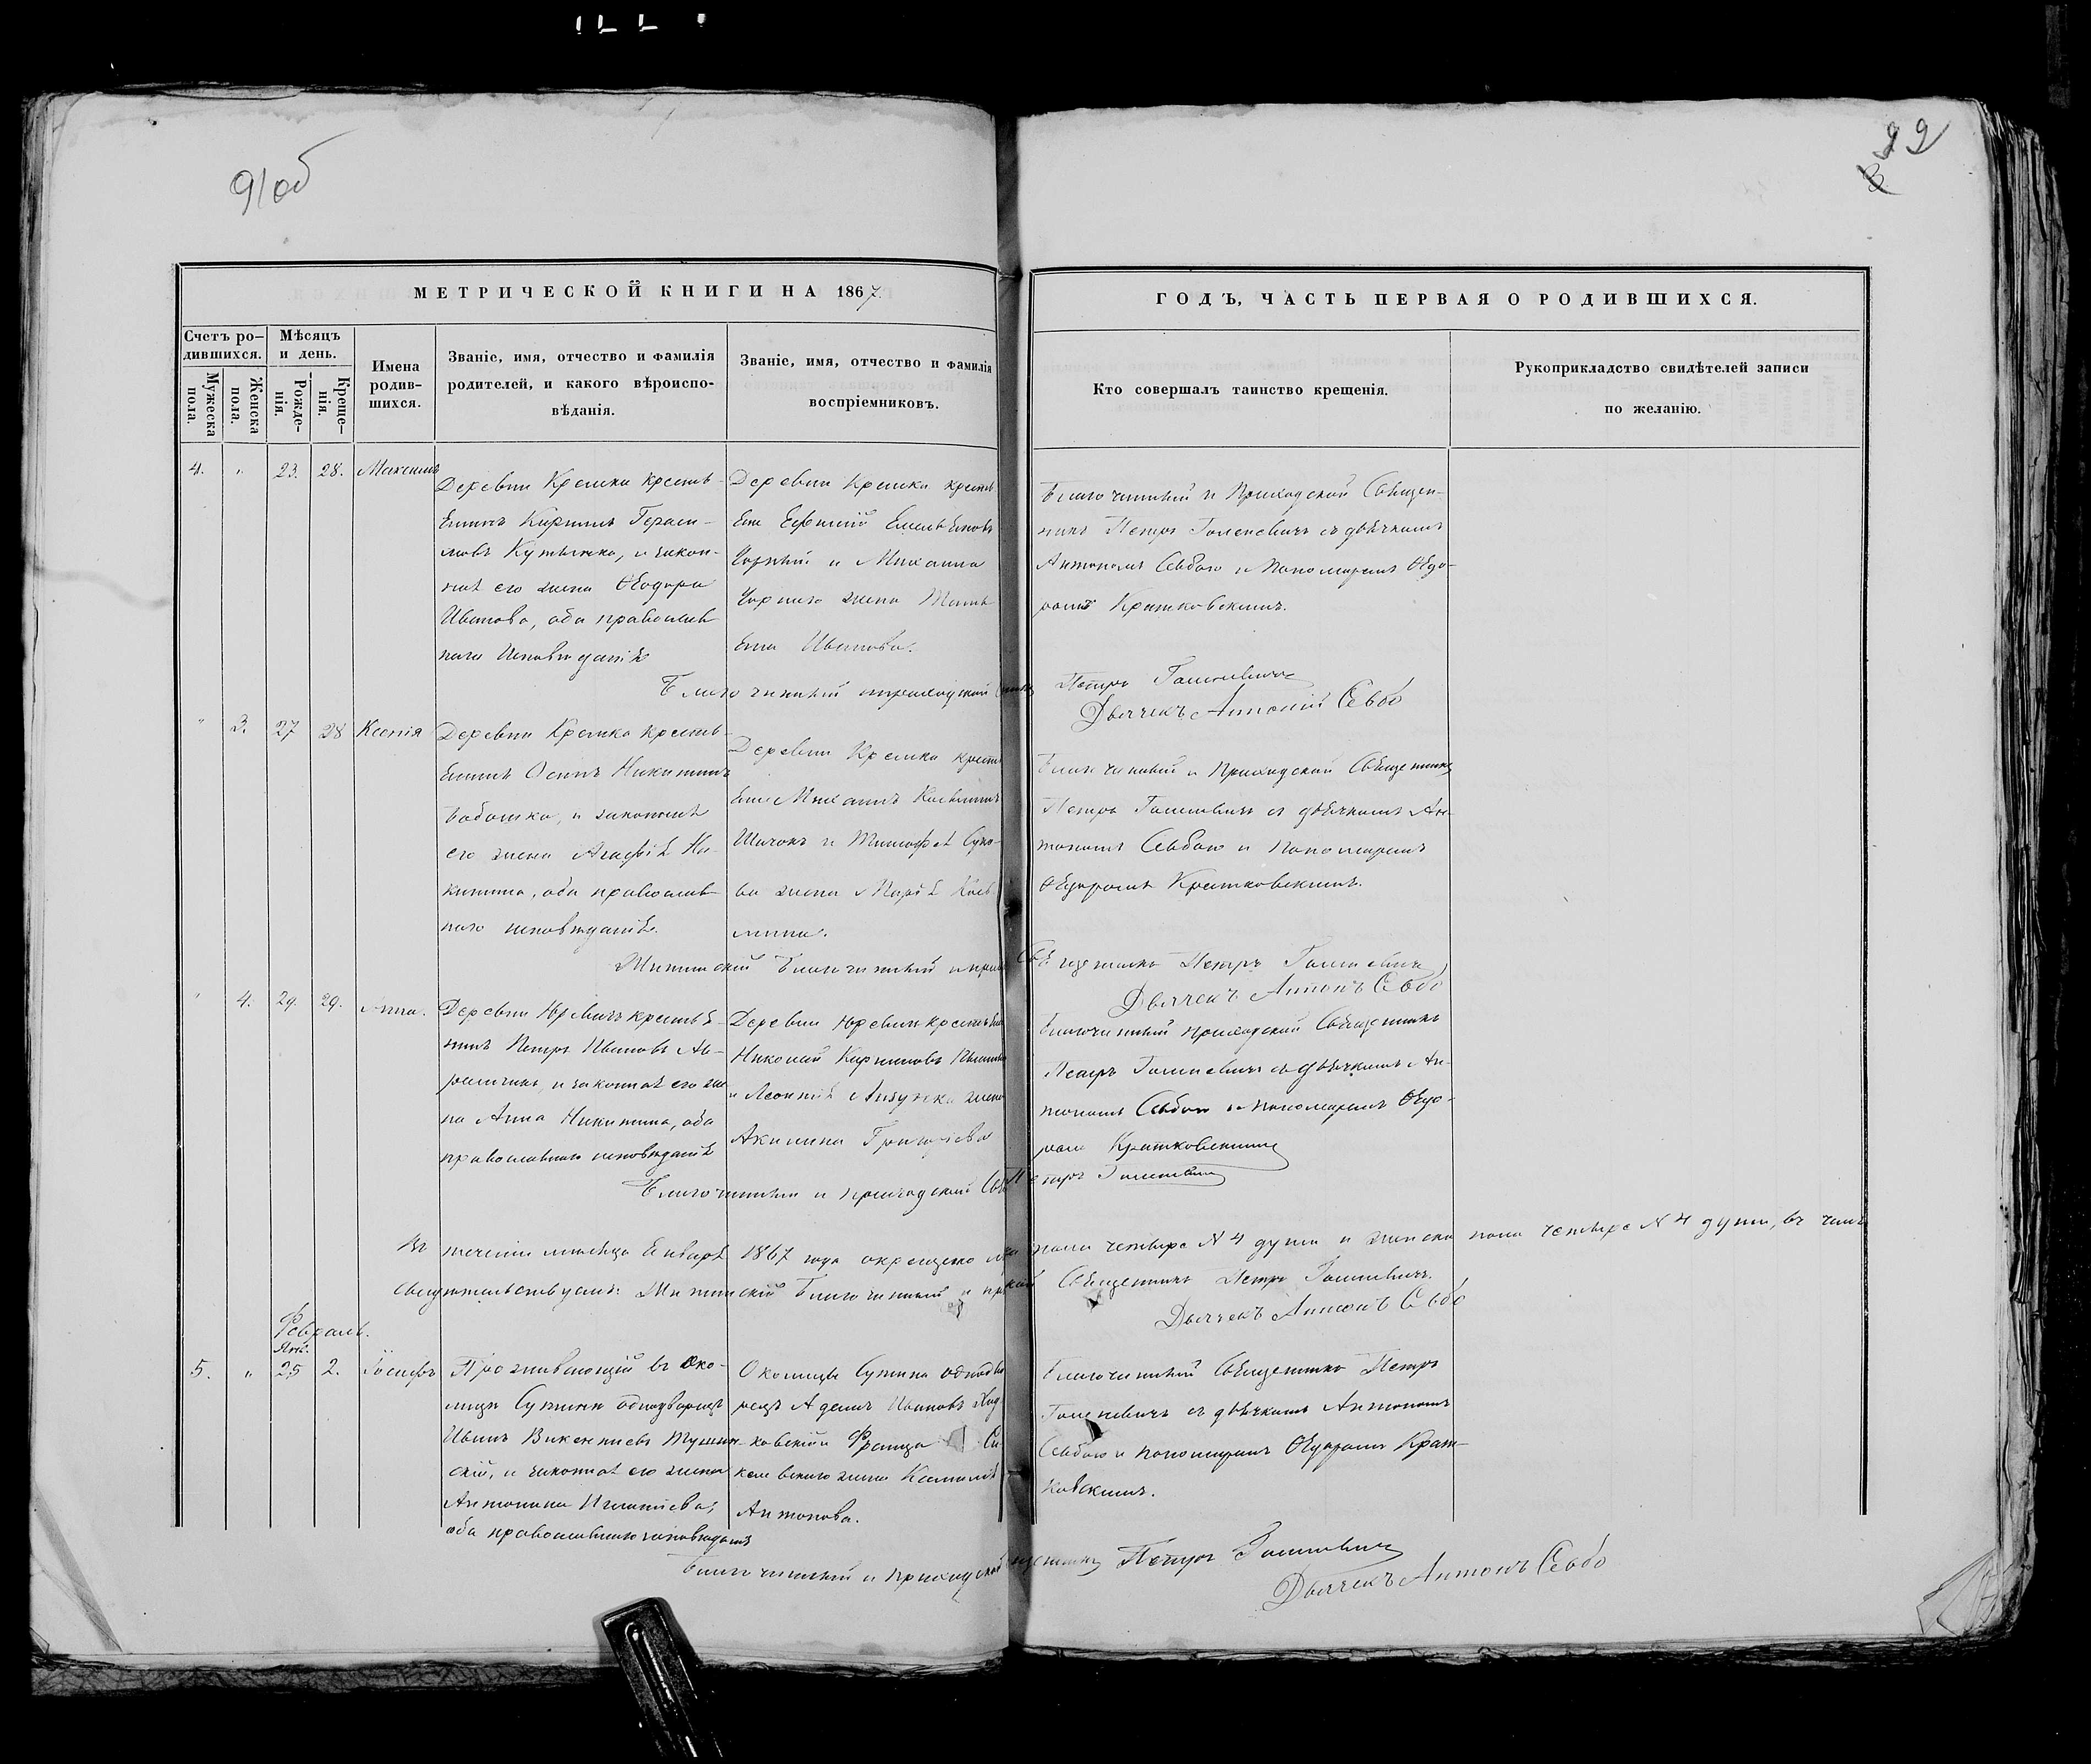 91об
92
МЕТРИЧЕСКОЙ КНИГИ НА 1867.
ГОДЪ, ЧАСТЬ ПЕРВАЯ О РОДИВШИХСЯ.
Счетъ ро-
дившихся.
Мужеска
пола.
Женска
пола.
Мѣсяцъ
и день.
Рожде-
нія.
Креще-
нія.
Имена
родив-
шихся.
Званіе, имя, отчество и фамилія
родителей, и какого вѣроиспо-
вѣданія.
Званіе, имя, отчество и фамилія
воспріемниковъ.
Кто совершалъ таинство крещенія.
Рукоприкладство свидѣтелей записи
по желанію.
4. " 23. 28. Максимъ
Деревни Кремка крестъ-
янинъ Кирилъ Гераси-
мовъ Кутынка, и закон-
ная его жена Ѳеодора
Иванова, оба православ
наго исповѣданія
Деревни Кремка крестья
Емельяновъ
Чорный и Михаила
Чорнаго жена Татья
яна Иванова.
Благочинный и Приходской Священ-
никъ Петръ Голеневичъ съ дьячкомъ
Антономъ Сѣвбою и Пономаремъ Ѳедо-
ромъ Кратковскимъ.
Благочинный и приходской
Петръ Голеневичъ
Дьячекъ Антоній Севбо
" 3. 27 28 Ксенія
Деревни Кремка крестъ-
янинъ Осипъ Никитинъ
Бабашка, и законная
его жена Агафія Ни-
китина, оба православ
наго исповѣданія.
Деревни Кремка крест
Михаилъ Касьянинъ
и Тимофея
ва жена Марія
мина.
Благочинный и Приходской Священникъ
Петръ Голеневичъ съ дьячкомъ Ан-
тономъ Севбою и Пономаремъ
Ѳедоромъ Кратковскимъ.
Благочинный и
Священникъ Петръ Голеневичъ
Дьячекъ Антонъ Севбо
" 4. 29. 29. Анна.
Деревни Юревичъ крестья-
нинъ Петръ Ивановъ
и законная его же
на Анна Никитина, оба
православнаго исповѣданія
Деревни Юревичъ крестьян
Николай Кириловъ
и Леонтія жена
Акилина Григорьева
Благочинный приходской Священникъ
Петръ Голеневичъ съ дьячкомъ Ан-
тономъ Севбою и Пономаремъ Ѳедо-
ромъ Кратковскимъ
Благочинный и приходскій
Петръ Голеневичъ
Въ теченіи мѣсяца Января 1867 года окрещено
пола четыре N 4 души и женска пола четыре N 4 души, въ чемъ
свидѣтельствуемъ: Благочинный и
Священникъ Петръ Голеневичъ.
Дьячекъ Антонъ Севбо
Февраль.
Янв.
5. " 25 2. Іосифъ
Проживающій въ Око-
лицѣ Сутина однодворецъ
Иванъ Викентіевъ Тушин-
скій, и законная его жена
Антонина Игнатіева,
оба православнаго исповѣданія
Околицы Сутина однодво
рецъ Адамъ Ивановъ
ковскій и Франца
жена Камилія
Антонова.
Благочинный Священникъ Петръ
Голеневичъ съ дьячкомъ Антономъ
Севбою и пономаремъ Ѳедоромъ Крат-
ковскимъ.
Благочинный и Приходской
Петръ Голеневичъ
Дьячекъ Антонъ Севбо